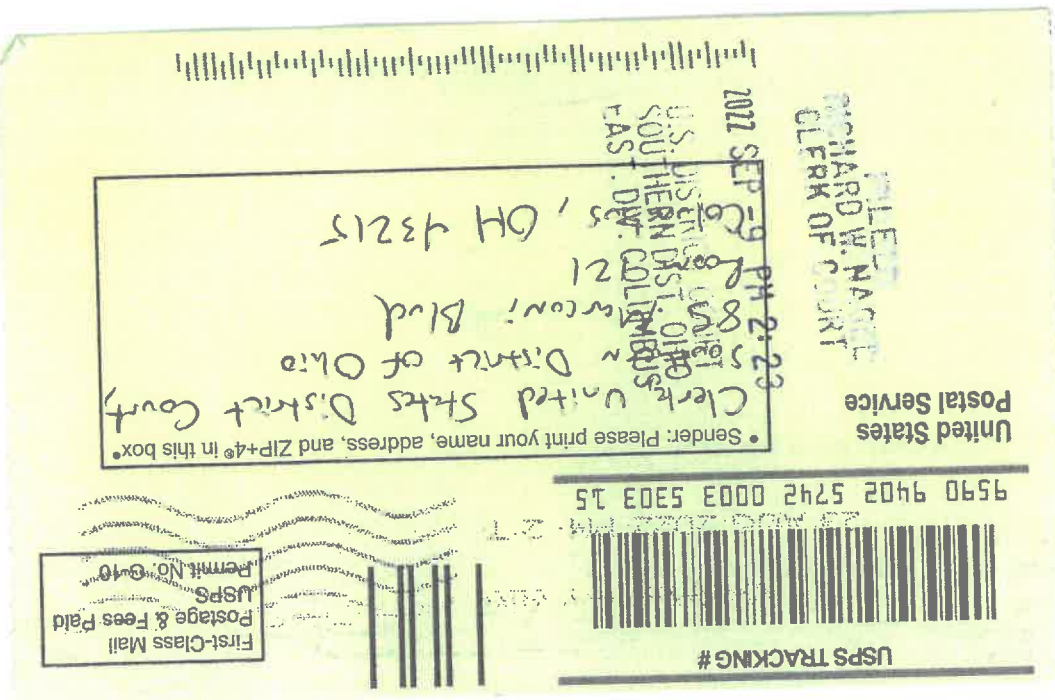 USPS TRACKING #
9590 9402 5742 0003 5303 15
First-Class Mail
Postage & Fees Paid
USPS
Permit No. G-10
United States
Postal Service
• Sender: Please print your name, address, and ZIP+4® in this box•
Clerk United States District Court,
District of Ohio
85 Marconi Blvd
121
OH 43215
FILED
RICHARD W. NAGEL
CLERK OF COURT
2022 SEP -9 PM 2:23
U.S. DISTRICT COURT
SOUTHERN DIST. OHIO
EAST. DIV. COLUMBUS